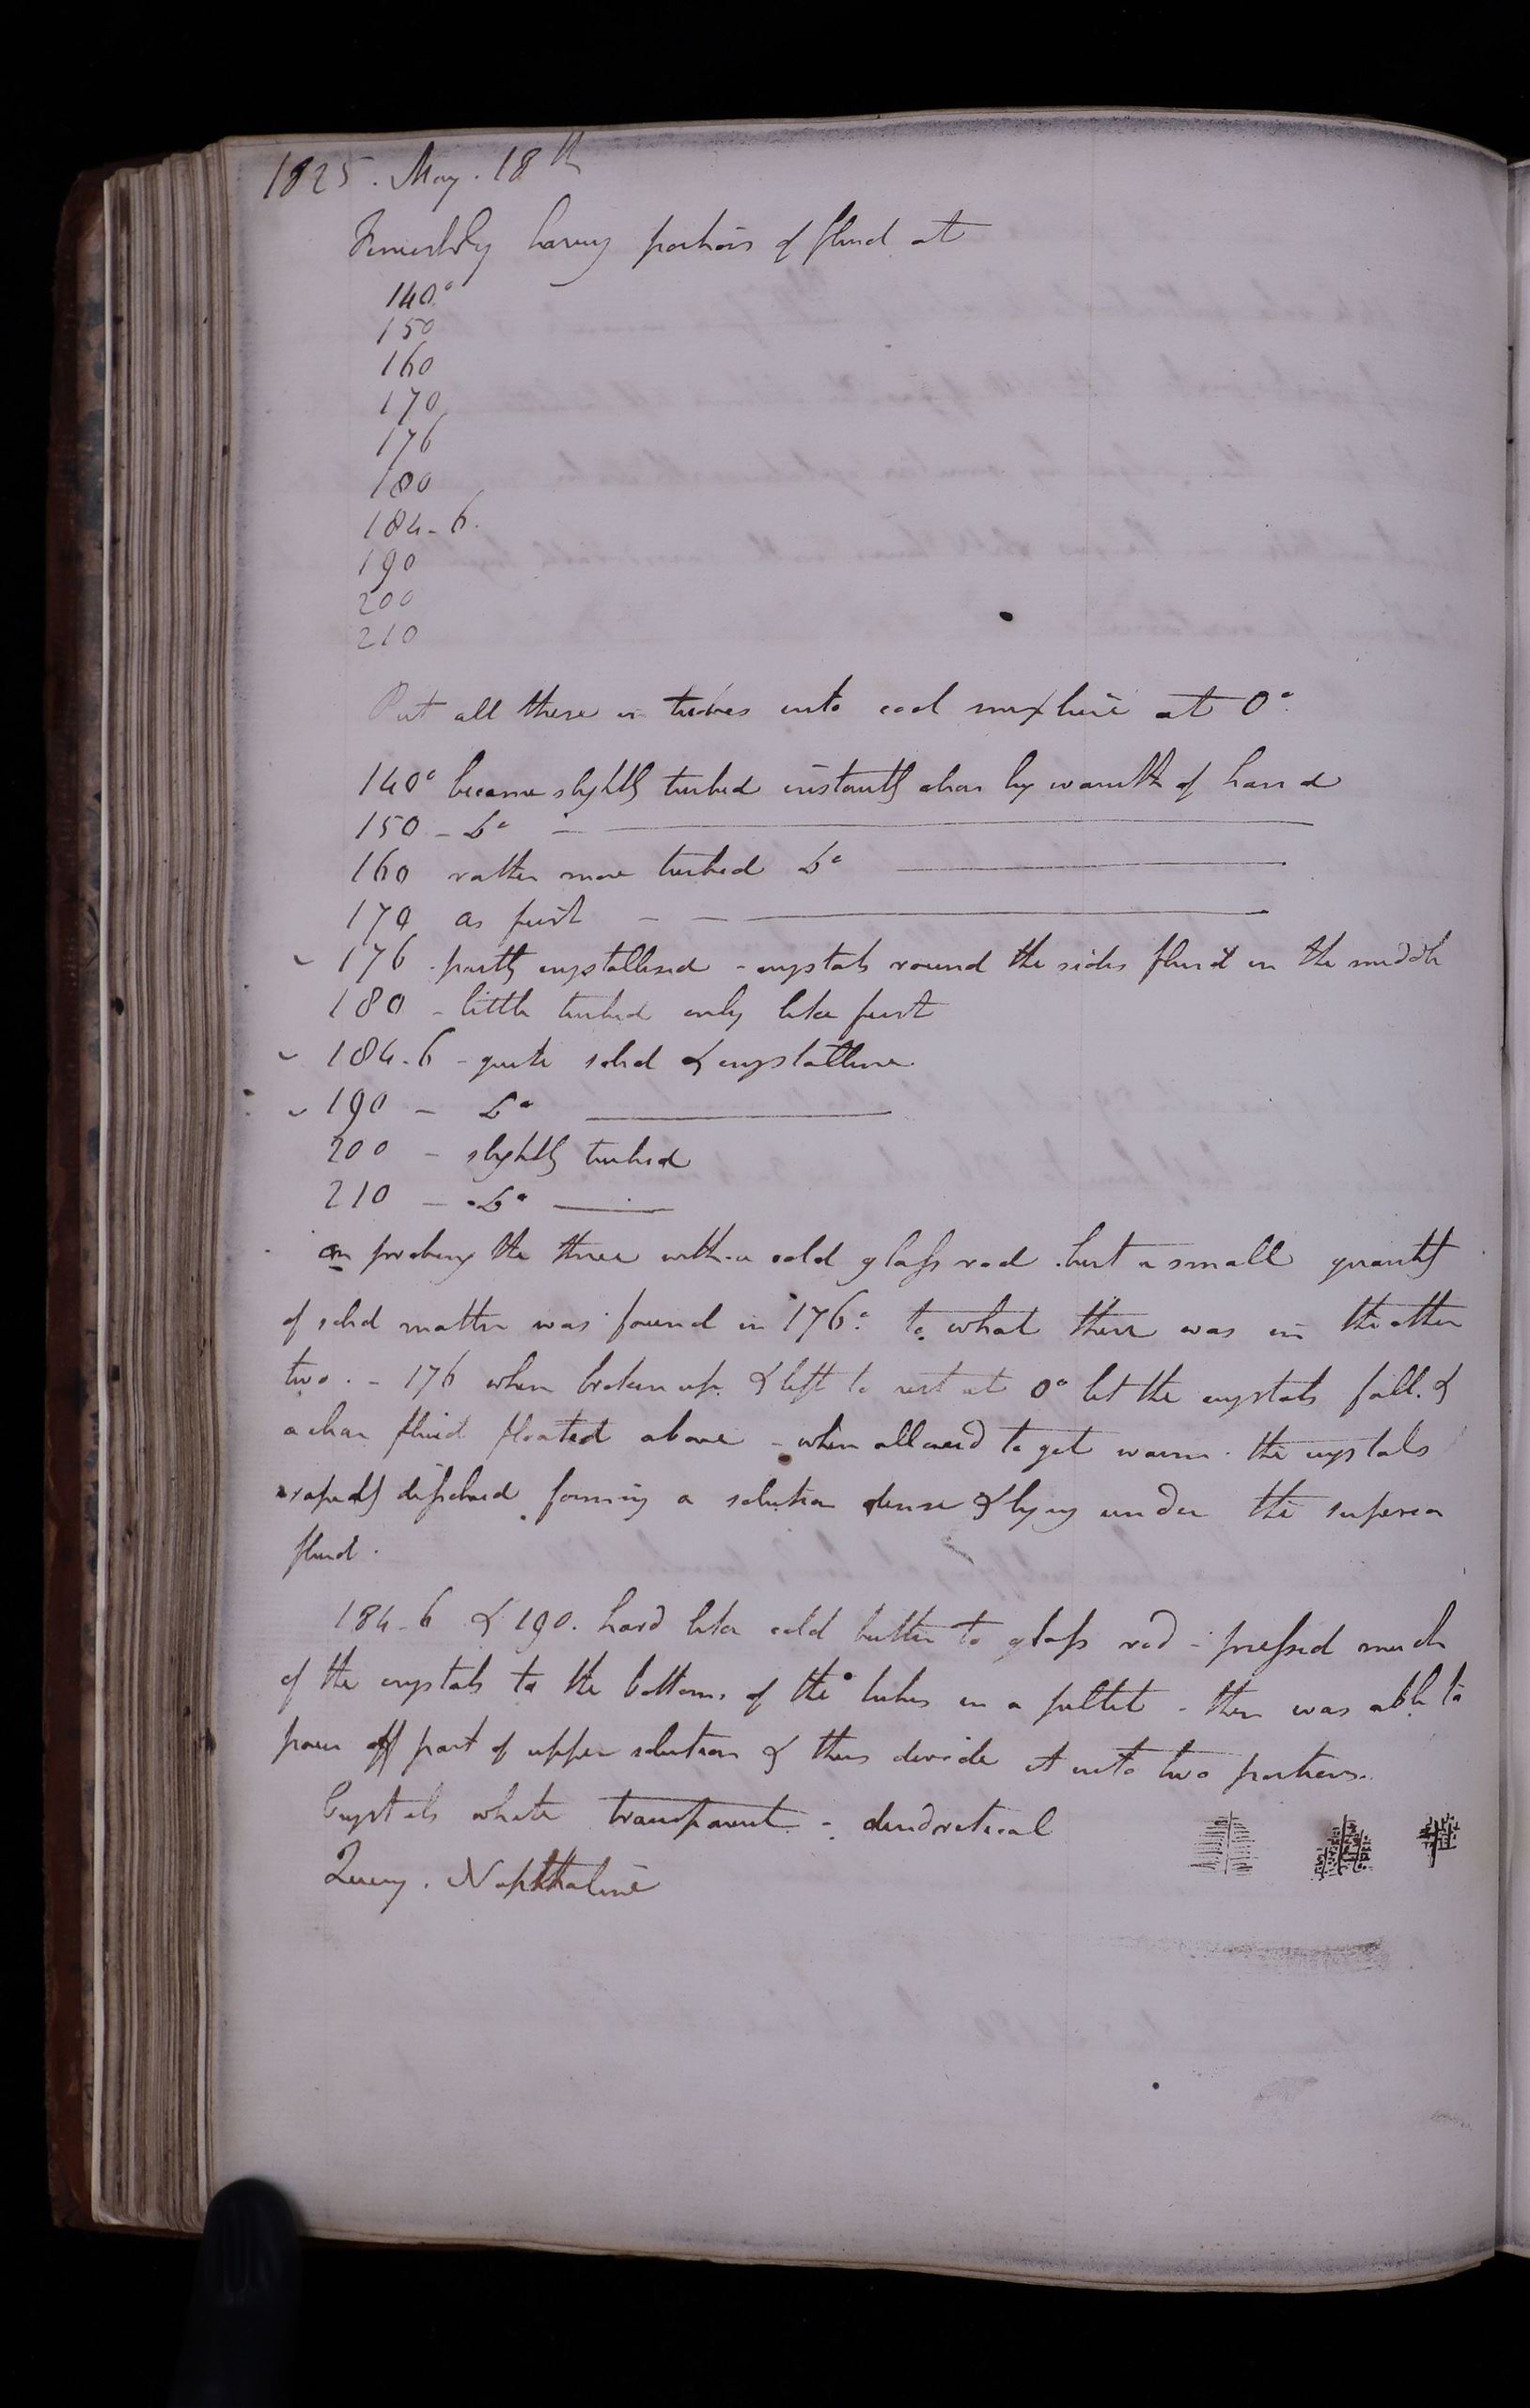 1825. May. 18th
having portions of fluid at
140°
150
160
170
176
180
184-6.
190
200
210
Put all these in tubes into cool mixture at 0°.
140° became slightly turbid instantly clear by warmth of hand
150 - Do -
160 rather more turbid Do
170 as first - -
176 partly crystallised - crystals round the sides fluid in the middle
180 - little turbid only like first
184-6 - quite solid & crystalline
190 - Do
200 - slightly turbid
210 - Do
on probing the three with a cold glass rod but a small quantity
of solid matter was found in 176° to what there was in the other
two. - 176 when broken up & left to rest at 0° let the crystals fall. &
a clear fluid floated above - when allowed to get warm the crystals
rapidly dissolved forming a solution dense & lying under the superior
fluid.
184-6 & 190. hard like cold butter to glass rod - pressed much
of the crystals to the bottoms of the tubes in a - then was able to
pour off part of upper solution & thus divide it into two portions.
Crystals white transparent - dendritical
Query. Naphthaline